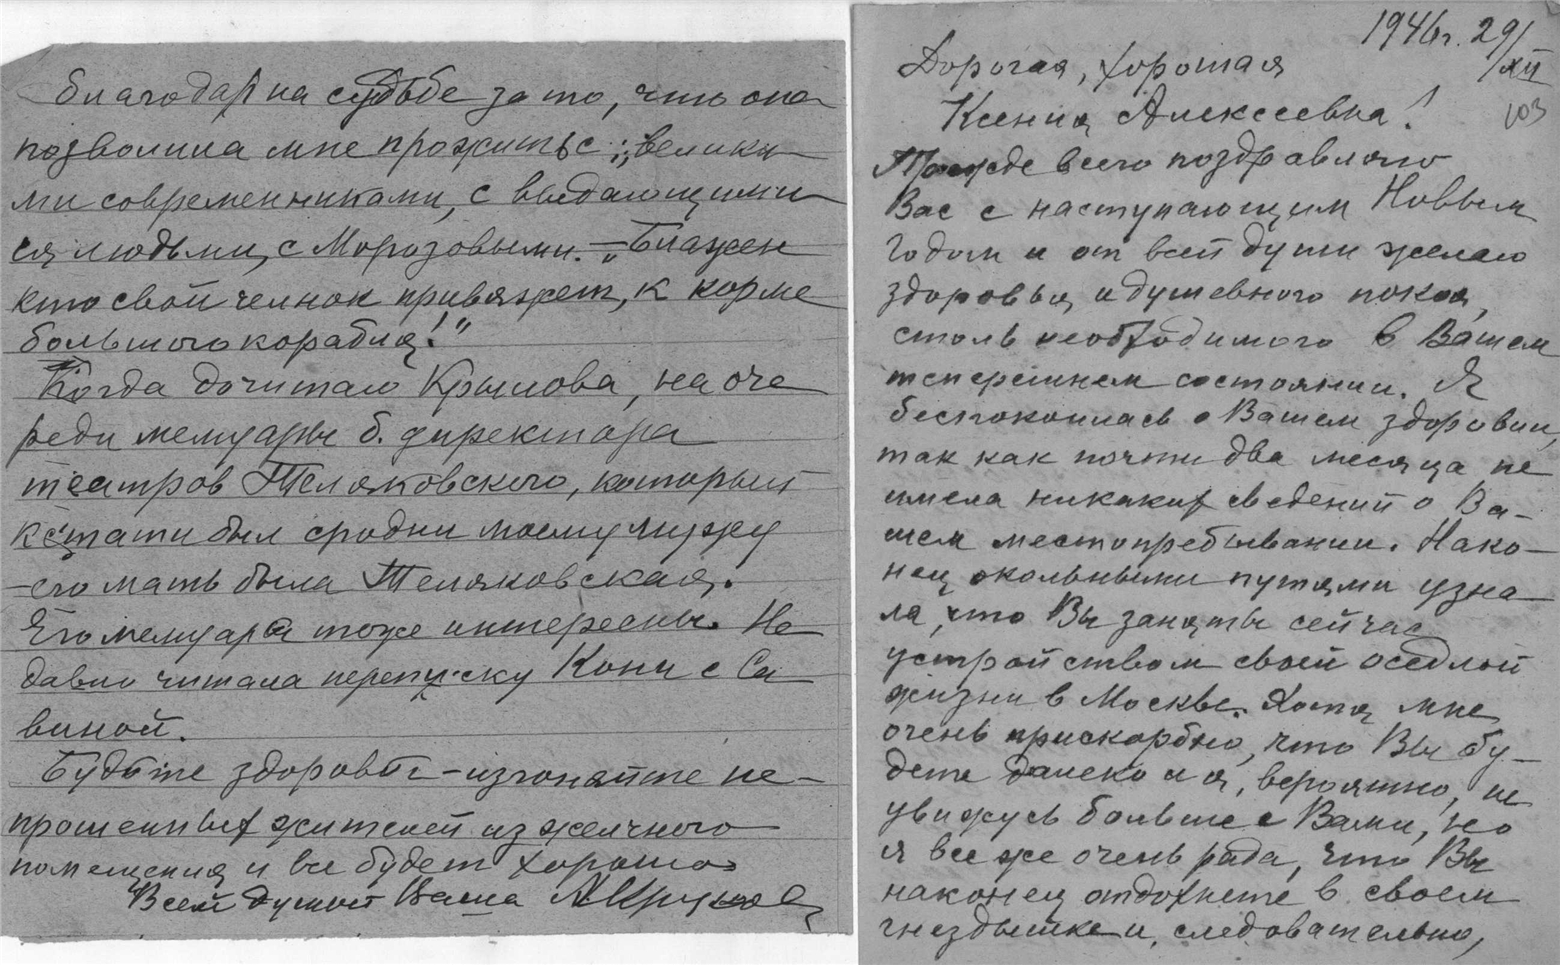 благодарна судьбе за то, что она
позволила мне прожить с „велики
ми современниками, с выдающими
ся людьми, с Морозовыми. — „Блажен
кто свой челнок привяжет, к корме
большого корабля!"
Когда дочитаю Крылова, на оче
реди мемуары б. директора
театров Теляковского, который
кстати был сродни моему мужу
— его мать была Теляковская.
Его мемуары тоже интересны. Не
давно читала переписку Кони с Са
виной.
Будьте здоровы — изгоняйте не-
прошенных жителей из желчного
помещения и все будет хорошо
Всей душой Ваша
1946г. 29/XII
103
Дорогая, хорошая
Ксения Алексеевна!
Прежде всего поздравляю
Вас с наступающим Новым
Годом и от всей души желаю
здоровья и душевного покоя,
столь необходимого в Вашем
теперешнем состоянии. Я
беспокоилась о Вашем здоровии,
так как почти два месяца не
имела никаких сведений о Ва-
шем местопребывании. Нако-
нец окольными путями узна-
ла, что Вы заняты сейчас
устройством своей оседлой
жизни в Москве. Хотя мне
очень прискорбно, что Вы бу-
дете далеко и я, вероятно, не
увижусь больше с Вами, но
я все же очень рада, что Вы
наконец отдохнете в своем
гнездышке и, следовательно,